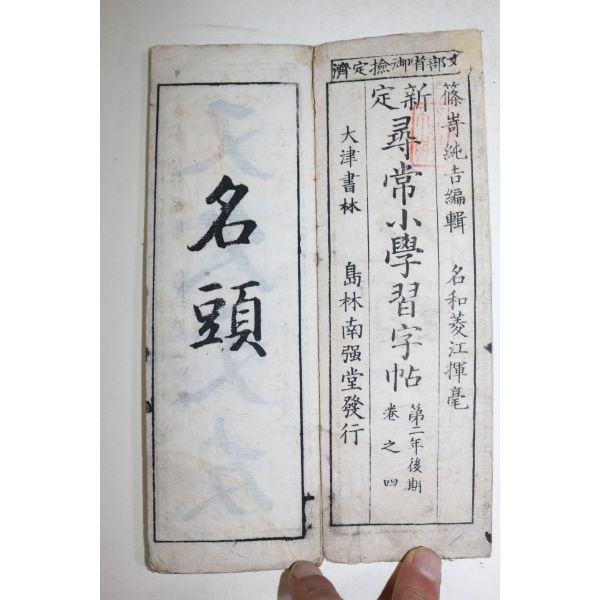 文部省御撿定濟
篠嵜純吉編輯　名和菱江揮毫
新定尋常小學習字帖　第二年後期　卷之四
大津書林　島林南强堂發行
名頭